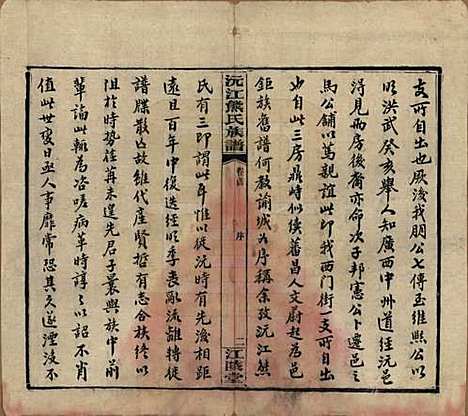 支所自出也厥後我朋公七傳至維熙公以
明洪武癸亥舉人知廣西中州道經沅
得見兩房後裔亦命次子邦憲公卜遷邑之
馬公鋪以篤親誼此即我西門街一支所自出
也自此三房鼎峙似續蕃昌人文蔚起為邑
鉅族舊譜何教諭城公序稱余攷沅江熊
沅江熊氏族譜
卷首
序
二
江陵堂
氏有三即謂此耳惟以從沅有先後相距
遠且百年中復迭經明季喪亂流離轉徙
譜牒散亡故雖代產賢哲有志合族終以
阻於時勢徃苒未遑先君子曩與族中前
輩論此輒為咨嗟病革時諄諄以詔不肖
值此世變日亟人事靡常恐其久遂湮沒不